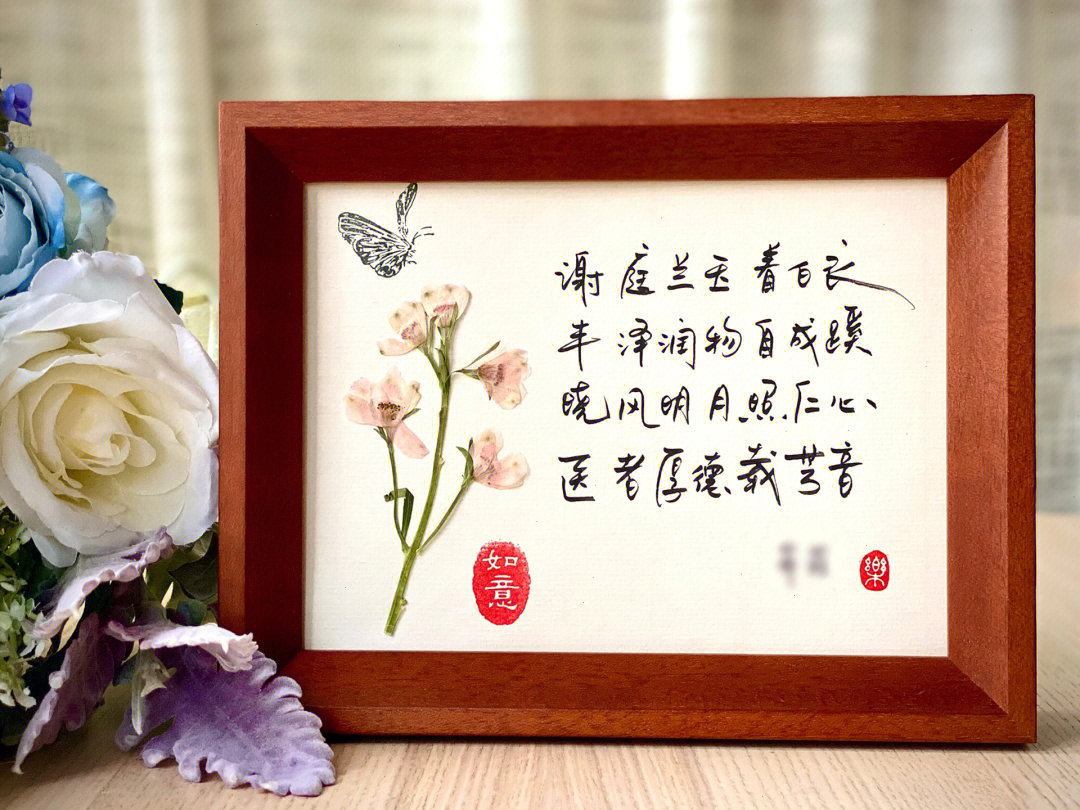 谢庭兰玉着白衣
丰泽润物自成蹊
晓风明月照仁心
医者厚德载梵音
如意
樂